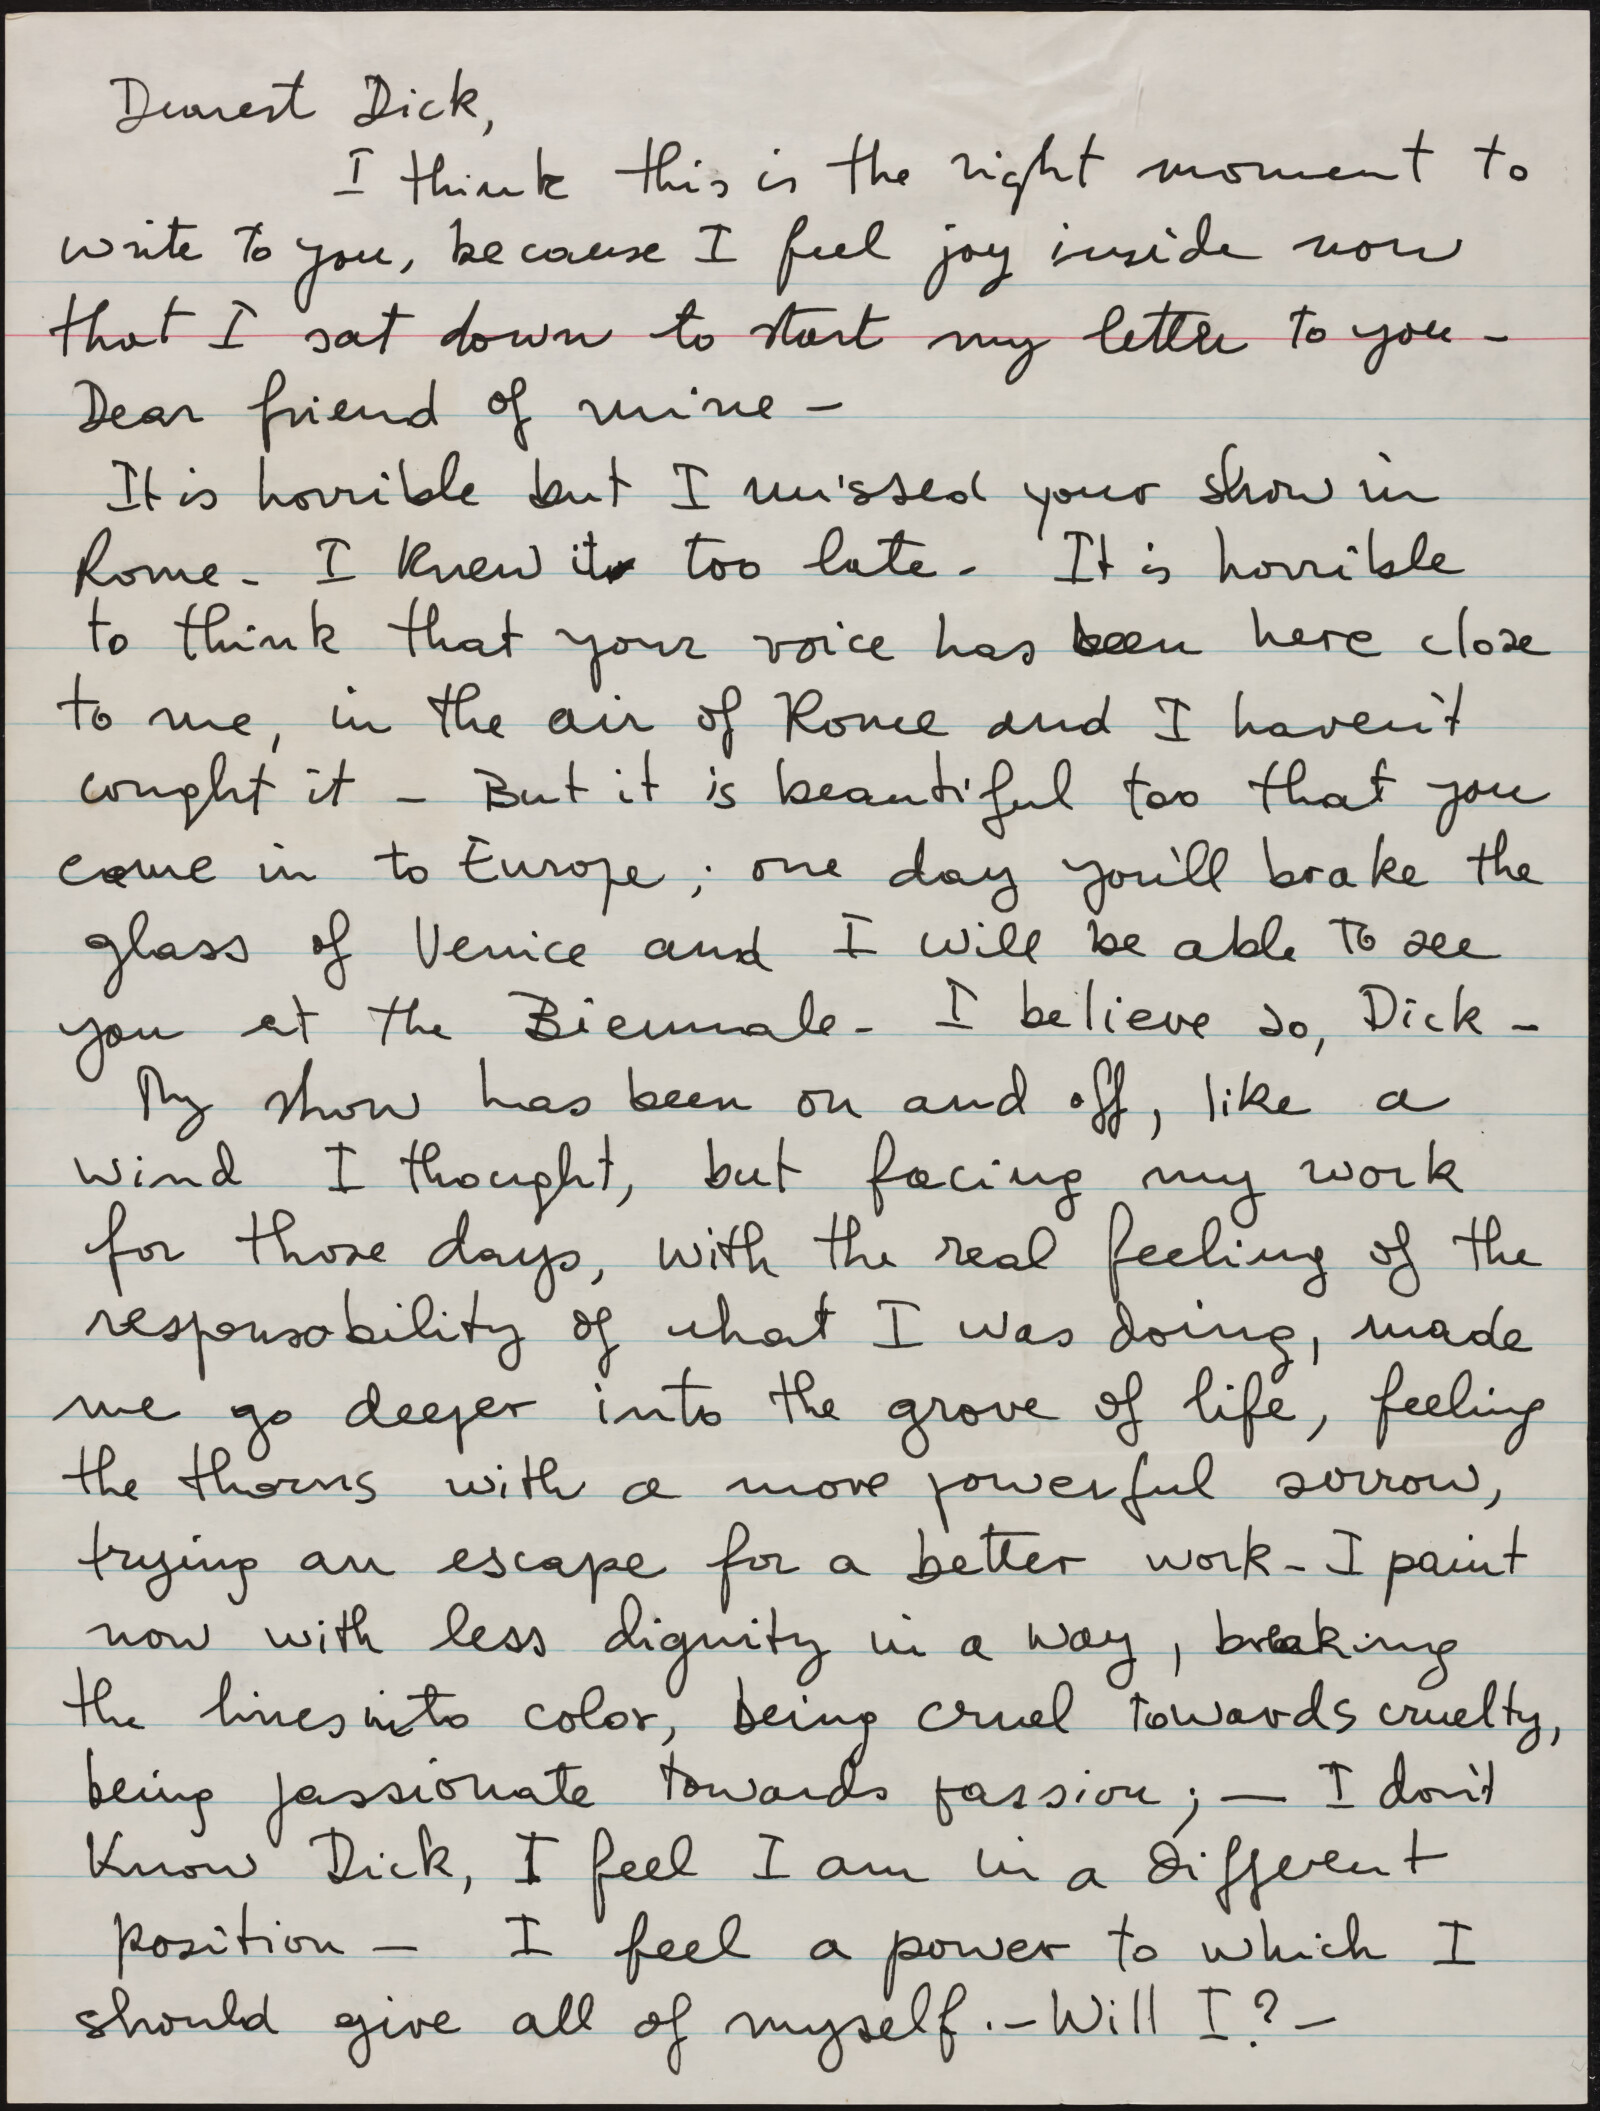 Dearest Dick,
I think this is the right moment to
write to you, because I feel joy inside now
that I sat down to start my letter to you -
Dear friend of mine -
It is horrible but I missed your show in
Rome - I knew it too late - It is horrible
to think that your voice has been here close
to me, in the air of Rome and I haven't
cought it - But it is beautiful too that you
came in to Europe ; one day you'll brake the
glass of Venice and I will be able to see
you at the Biennale - I believe so, Dick -
My show has been on and off, like a
wind I thought, but facing my work
for those days, with the real feeling of the
responsability of what I was doing, made
me go deeper into the grove of life, feeling
the thorns with a more powerful sorrow,
trying an escape for a better work - I paint
now with less dignity in a way, breaking
the lines into color, being cruel towards cruelty,
being passionate towards passion ; — I don't
know Dick, I feel I am in a different
position — I feel a power to which I
should give all of myself. - Will I ? -